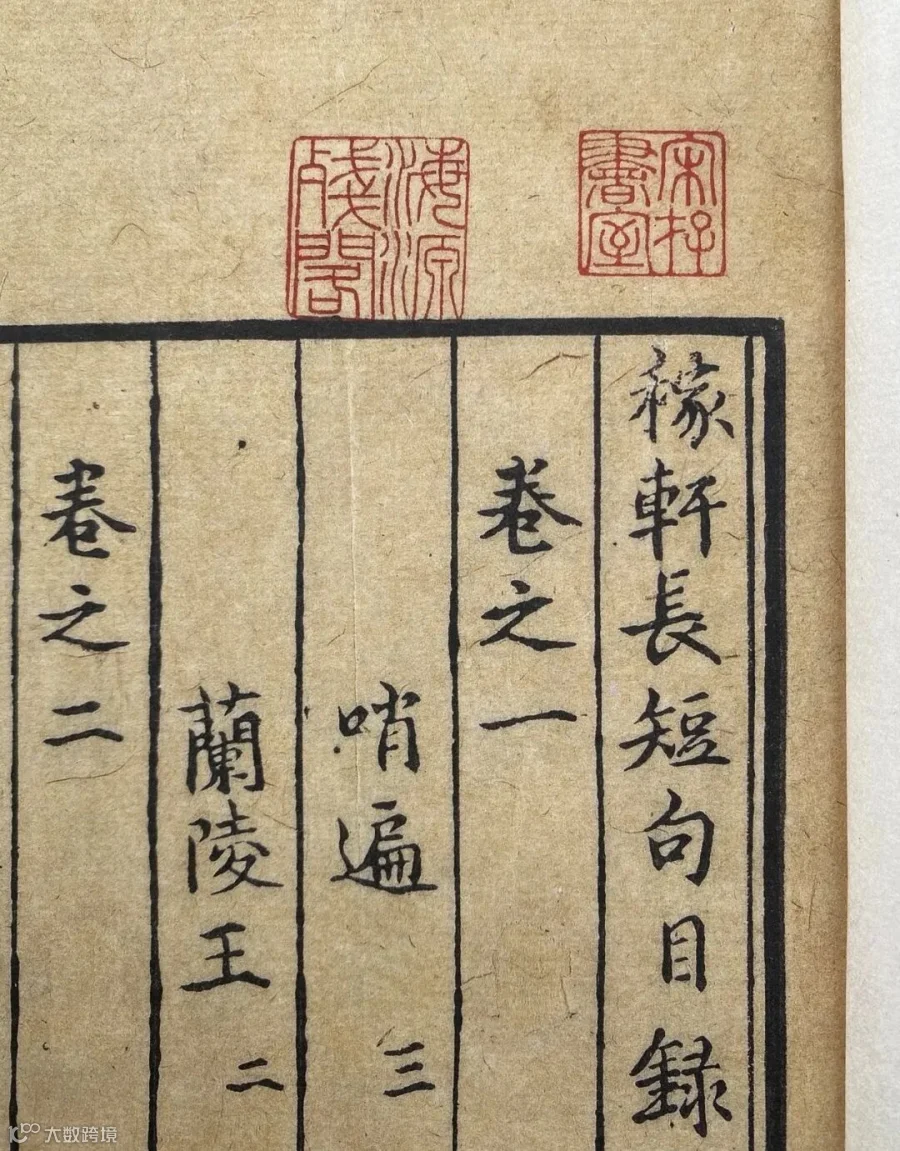 宋存書室
海源殘閣
稼軒長短句目録
卷之一
哨遍 三
蘭陵王 二
卷之二
大数跨境